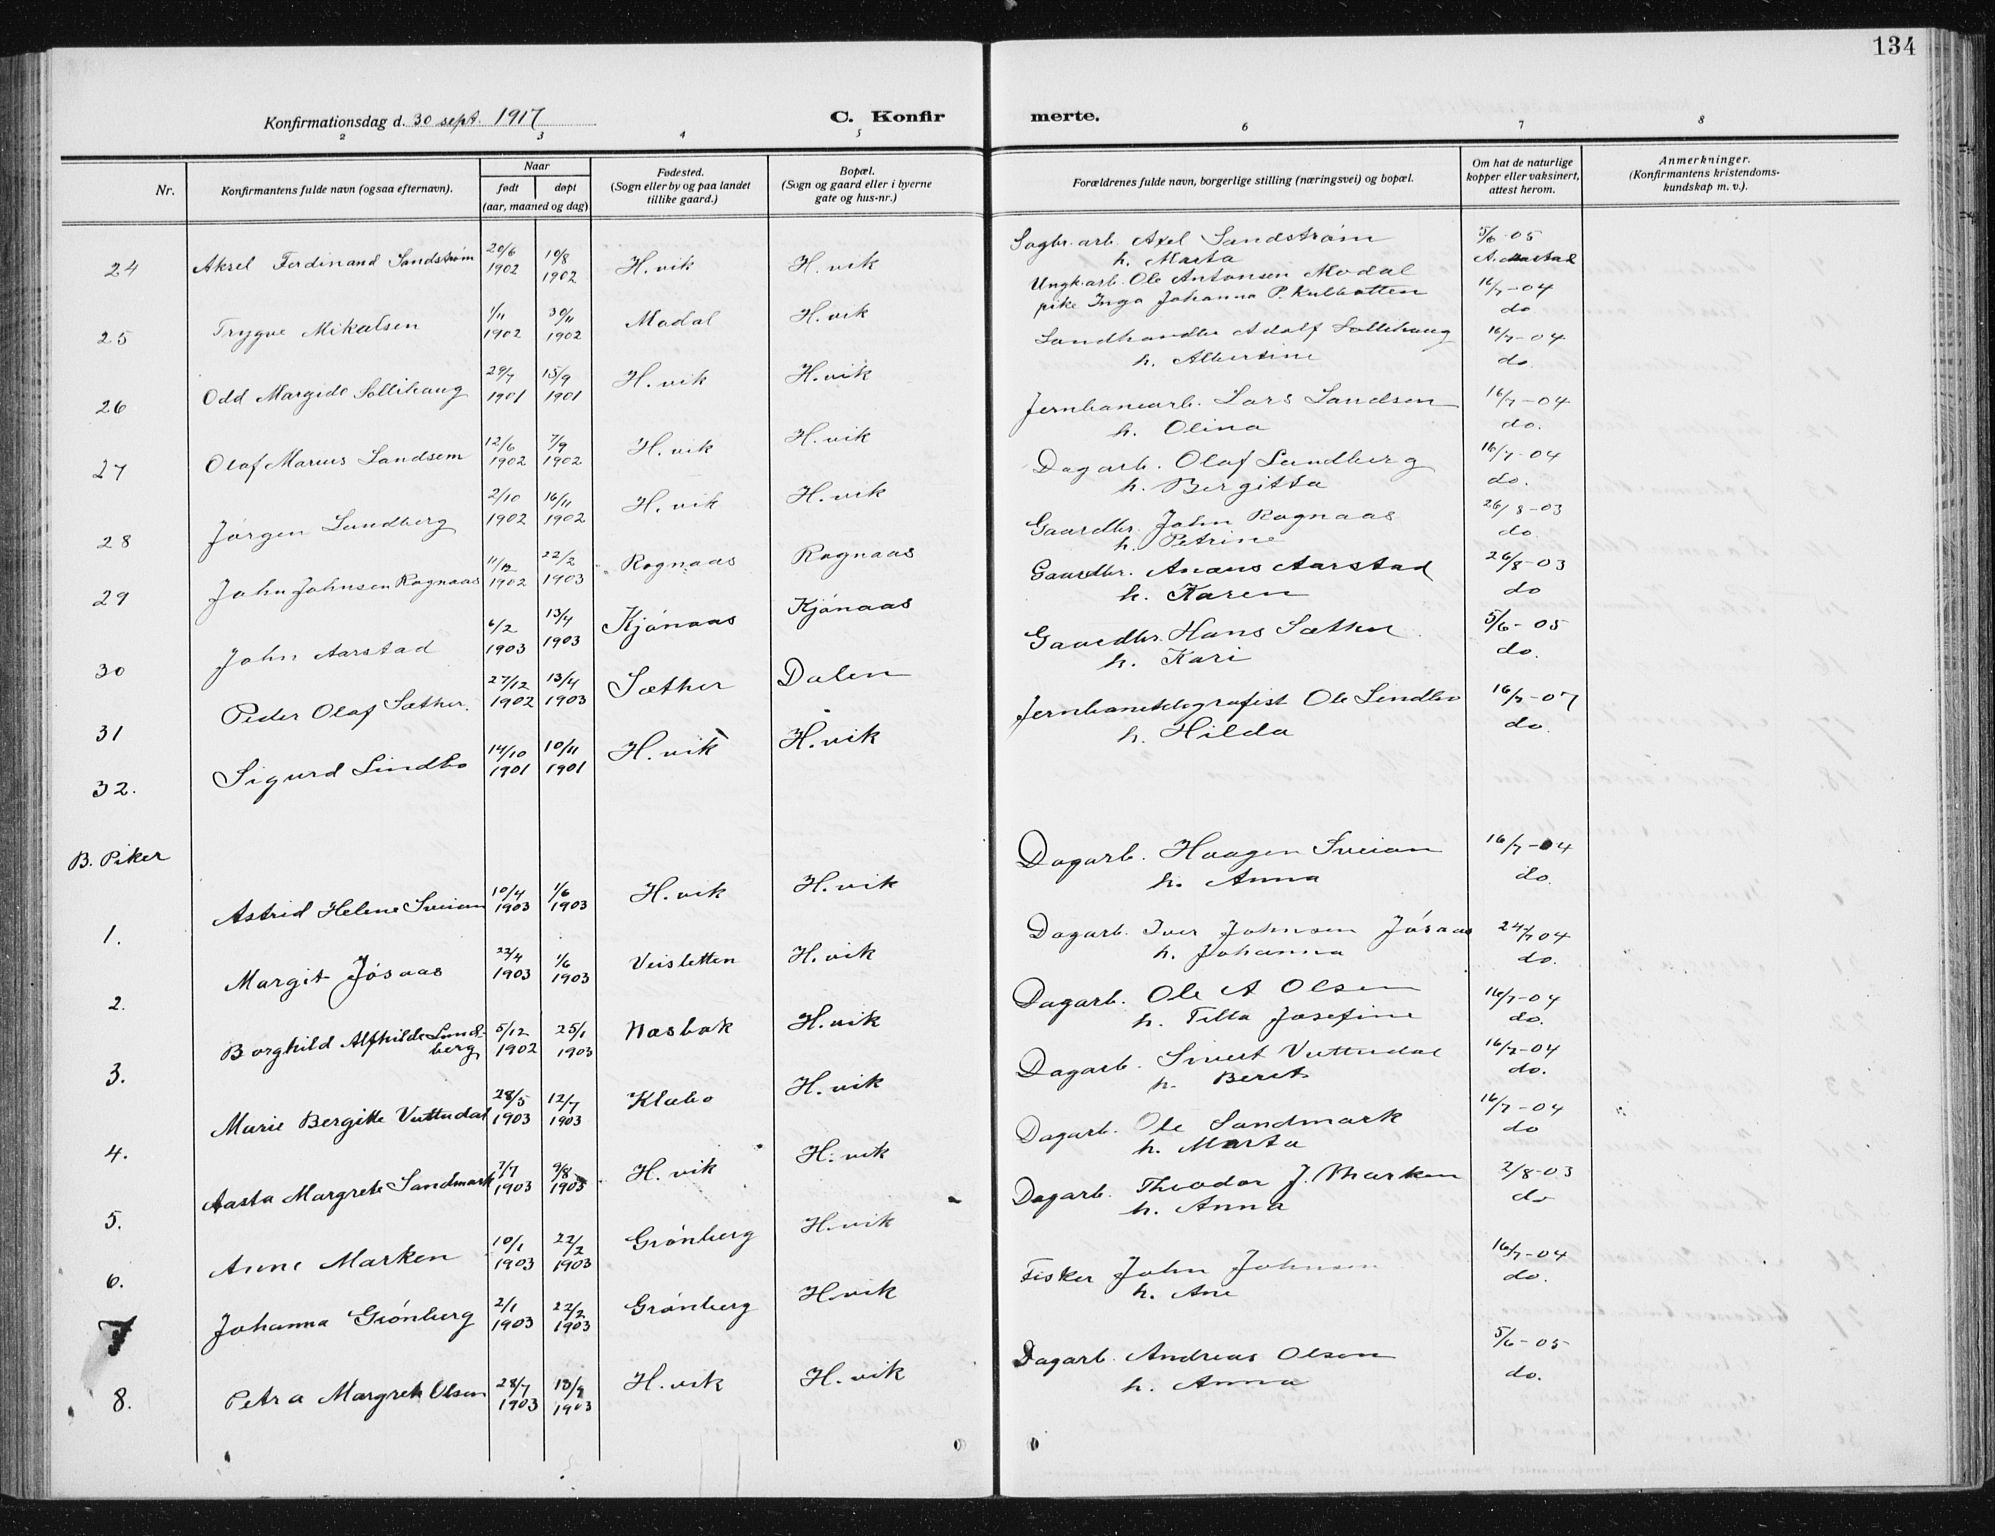 134
Konfirmationsdag d. 30 sept. 1917
C. Konfirmerte.
2 3 4 5 6 7 8
Nr. Konfirmantens fulde navn (ogsaa efternavn). Naar født døpt (aar, maaned og dag) Fødested. (Sogn eller by og paa landet tillike gaard.) Bopæl. (Sogn og gaard eller i byerne gate og hus-nr.) Forældrenes fulde navn, borgerlige stilling (næringsvei) og bopæl. Om hat de naturlige kopper eller vaksinert, attest herom. Anmerkninger. (Konfirmantens kristendomskundskap m. v.).
24 Aksel Ferdinand Sandstrøm 20/6 1902 10/8 1902 H.vik H.vik Sagbr. arb. Axel Sandstrøm h. Marta 5/6-05 A. Aarstad
25 Trygve Mikalsen 1/11 1902 30/11 1902 Modal H.vik Ungk. arb. Ole Antonsen Modal pike Inga Johanna P. Kulbotten 16/7-04 do
26 Odd Margido Sollihaug 29/7 1901 15/9 1901 H.vik H.vik Landhandler Adolf Sollihaug h. Albertine 16/7-04 do.
27 Olaf Marius Landsem 12/6 1902 7/9 1902 H.vik H.vik Jernbanearb. Lars Landsem h. Olina 16/7-04 do.
28 Jørgen Lundberg 2/10 1902 16/11 1902 H.vik H.vik Dagarb. Olaf Lundberg h. Bergitta 16/7-04 do.
29 John Johnsen Rognaas 11/12 1902 22/2 1903 Rognaas Rognaas Gaardbr. John Rognaas h. Petrine 26/8-03 do
30 John Aarstad 6/2 1903 13/4 1903 Kjønaas Kjønaas Gaardbr. Anæus Aarstad h. Karen 26/8-03 do
31 Peder Olaf Sæther. 27/12 1902 13/4 1903 Sæther Dalen Gaardbr. Hans Sæther h. Kari 5/6-05 do.
32. Sigurd Lindbo 14/10 1901 10/11 1901 H.vik H.vik Jernbanetelegrafist Ole Lindbo h. Hilda 16/7-07 do.
B. Piker
1. Astrid Helene Sveian 10/4 1903 1/6 1903 H.vik H.vik Dagarb. Haagen Sveian h. Anna 16/7-04 do.
2. Margit Jøsaas 22/4 1903 1/6 1903 Veisletten H.vik Dagarb. Iver Johnsen Jøsaas h. Johanna 24/7 04 do.
3. Borghild Alfhilde Lundberg 5/12 1902 25/1 1903 Næsbak H.vik Dagarb. Ole A Olsen h. Tilla Josefine 16/7-04 do.
4. Marie Bergitte Vuttudal 28/5 1903 12/7 1903 Klæbo H.vik Dagarb. Sivert Vuttudal h. Beret 16/7-04 do.
5. Aasta Margrete Sandmark 7/7 1903 9/8 1903 H.vik H.vik Dagarb. Ole Sandmark h. Marta 16/7-04 do
6. Anne Marken 10/1 1903 22/2 1903 Grønberg H.vik Dagarb. Theodor J. Marken h. Anna 2/8-03 do
7 Johanna Grønberg 2/1 1903 22/2 1903 Grønberg H.vik Fisker John Johnsen h. Ane 16/7-04 do.
8. Petra Margrete Olsen 28/7 1903 13/9 1903 H.vik H.vik Dagarb. Andreas Olsen h. Anna 5/6-05 do.